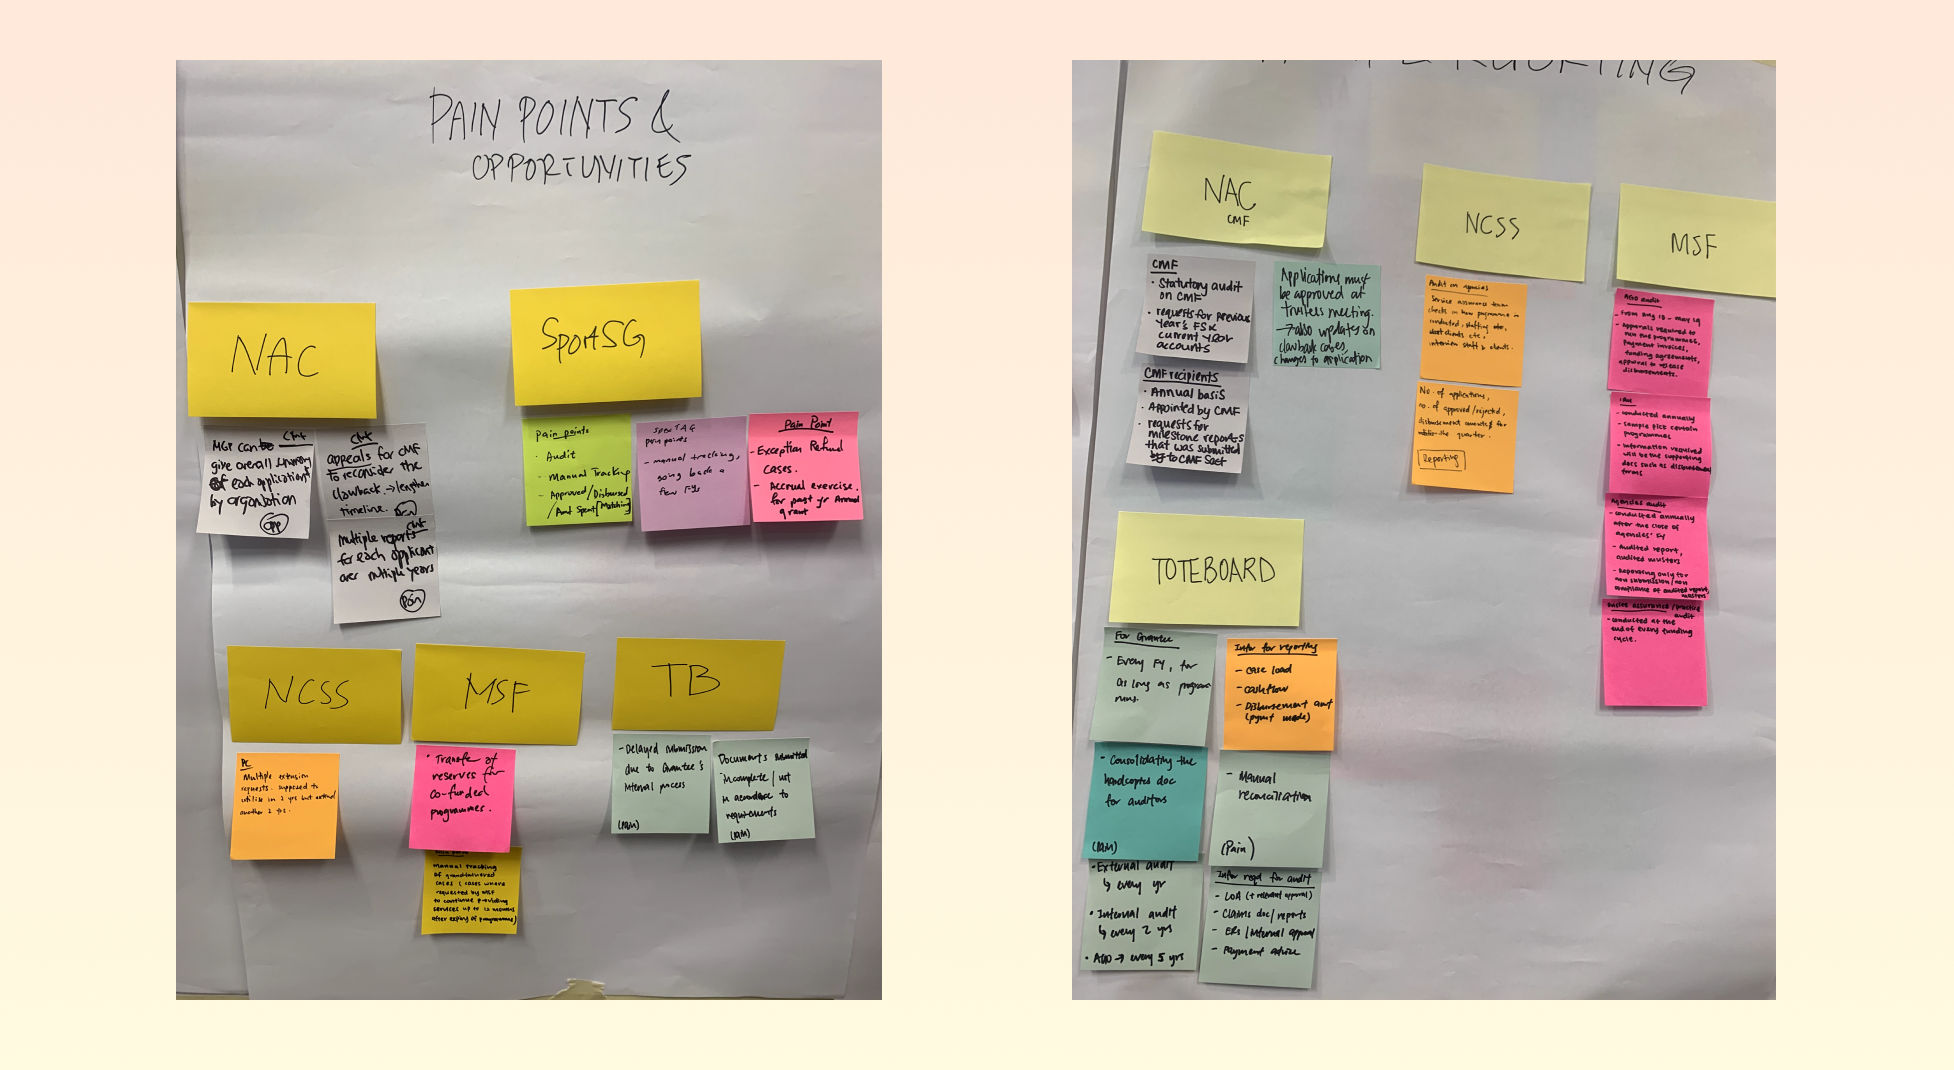 PAIN POINTS &
OPPORTUNITIES
NAC
CMF
MGr can
give overall summary
of each application
by organisation
opp
CMF
appeals for CMF
to reconsider the
clawback → lengthen
timeline.
CMF
Multiple reports
for each applicant
over multiple years
Pain
SportSG
Pain points
- Audit
- Manual Tracking
- Approved/Disbursed
/Amt Spent [Matching]
pain points
- manual tracking,
going back a
few FYs
Pain Point
- Exception Refund
cases.
- Accrual exercise.
for past yr Annual
grant
NCSS
PC
Multiple extension
requests. Supposed to
utilise in 2 yrs but extend
another 2 yrs.
MSF
• Transfer of
reserves for
co-funded
programmes.
manual tracking
of grandfathered
cases (cases where
requested by MSF
to continue providing
services up to 12 months
after expiry of programme)
TB
- Delayed submission
due to Grantee's
internal process
Documents submitted
incomplete / not
in accordance to
requirements
NAC
CMF
CMF
• Statutory audit
on CMF
• requests for previous
year's FS &
current year
accounts
Applications must
be approved at
trustees meeting.
→ also updates on
clawback cases,
changes to application
CMF recipients
• Annual basis
• Appointed by CMF
• requests for
milestone reports
that was submitted
to CMF Sect
NCSS
Audit on agencies
Service assurance team
checks in how programme is
conducted, staffing
interview staff & clients.
No. of applications,
no. of approved/rejected,
disbursement amounts for
the quarter.
Reporting
MSF
AGO audit
- From Aug 18 - May 19
- Approvals required to
run the programmes,
payment invoices,
funding agreements,
approval to release
disbursements.
- conducted annually
- sample pick certain
programmes
- information required
will be the supporting
docs such as disbursement
forms
Agencies audit
- conducted annually
after the close of
agencies' FY
- Audited report,
audited musters
- Reporting only for
non submission/non
compliance of audited report,
musters
Onsite assurance/practice
audit
- conducted at the
end of every funding
cycle.
TOTEBOARD
For Grantee
- Every FY, for
as long as programme
runs.
Infor for reporting
- case load
- cashflow
- Disbursement amt
(pymt mode)
- Consolidating the
hardcopies doc
for auditors
- Manual
reconciliation
(Pain)
• External audit
↳ every yr
• Internal audit
↳ every 2 yrs
• AGO → every 5 yrs
Infor reqd for audit
- LOA (+ relevant approval)
- Claims doc/reports
- ERs / Internal approval
- Payment advice